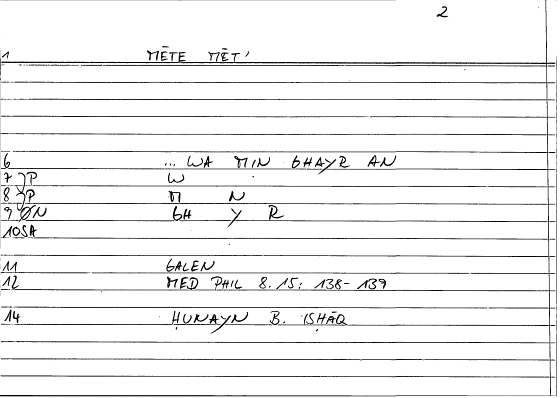 2
1 MĒTE MĒT'
6 ... WA MIN GHAYR AN
7 }P W
8 }P M N
9 ØN GH Y R
10SA
11 GALEN
12 MED PHIL 8.15: 138-139
14 ḤUNAYN B. ISḤĀQ